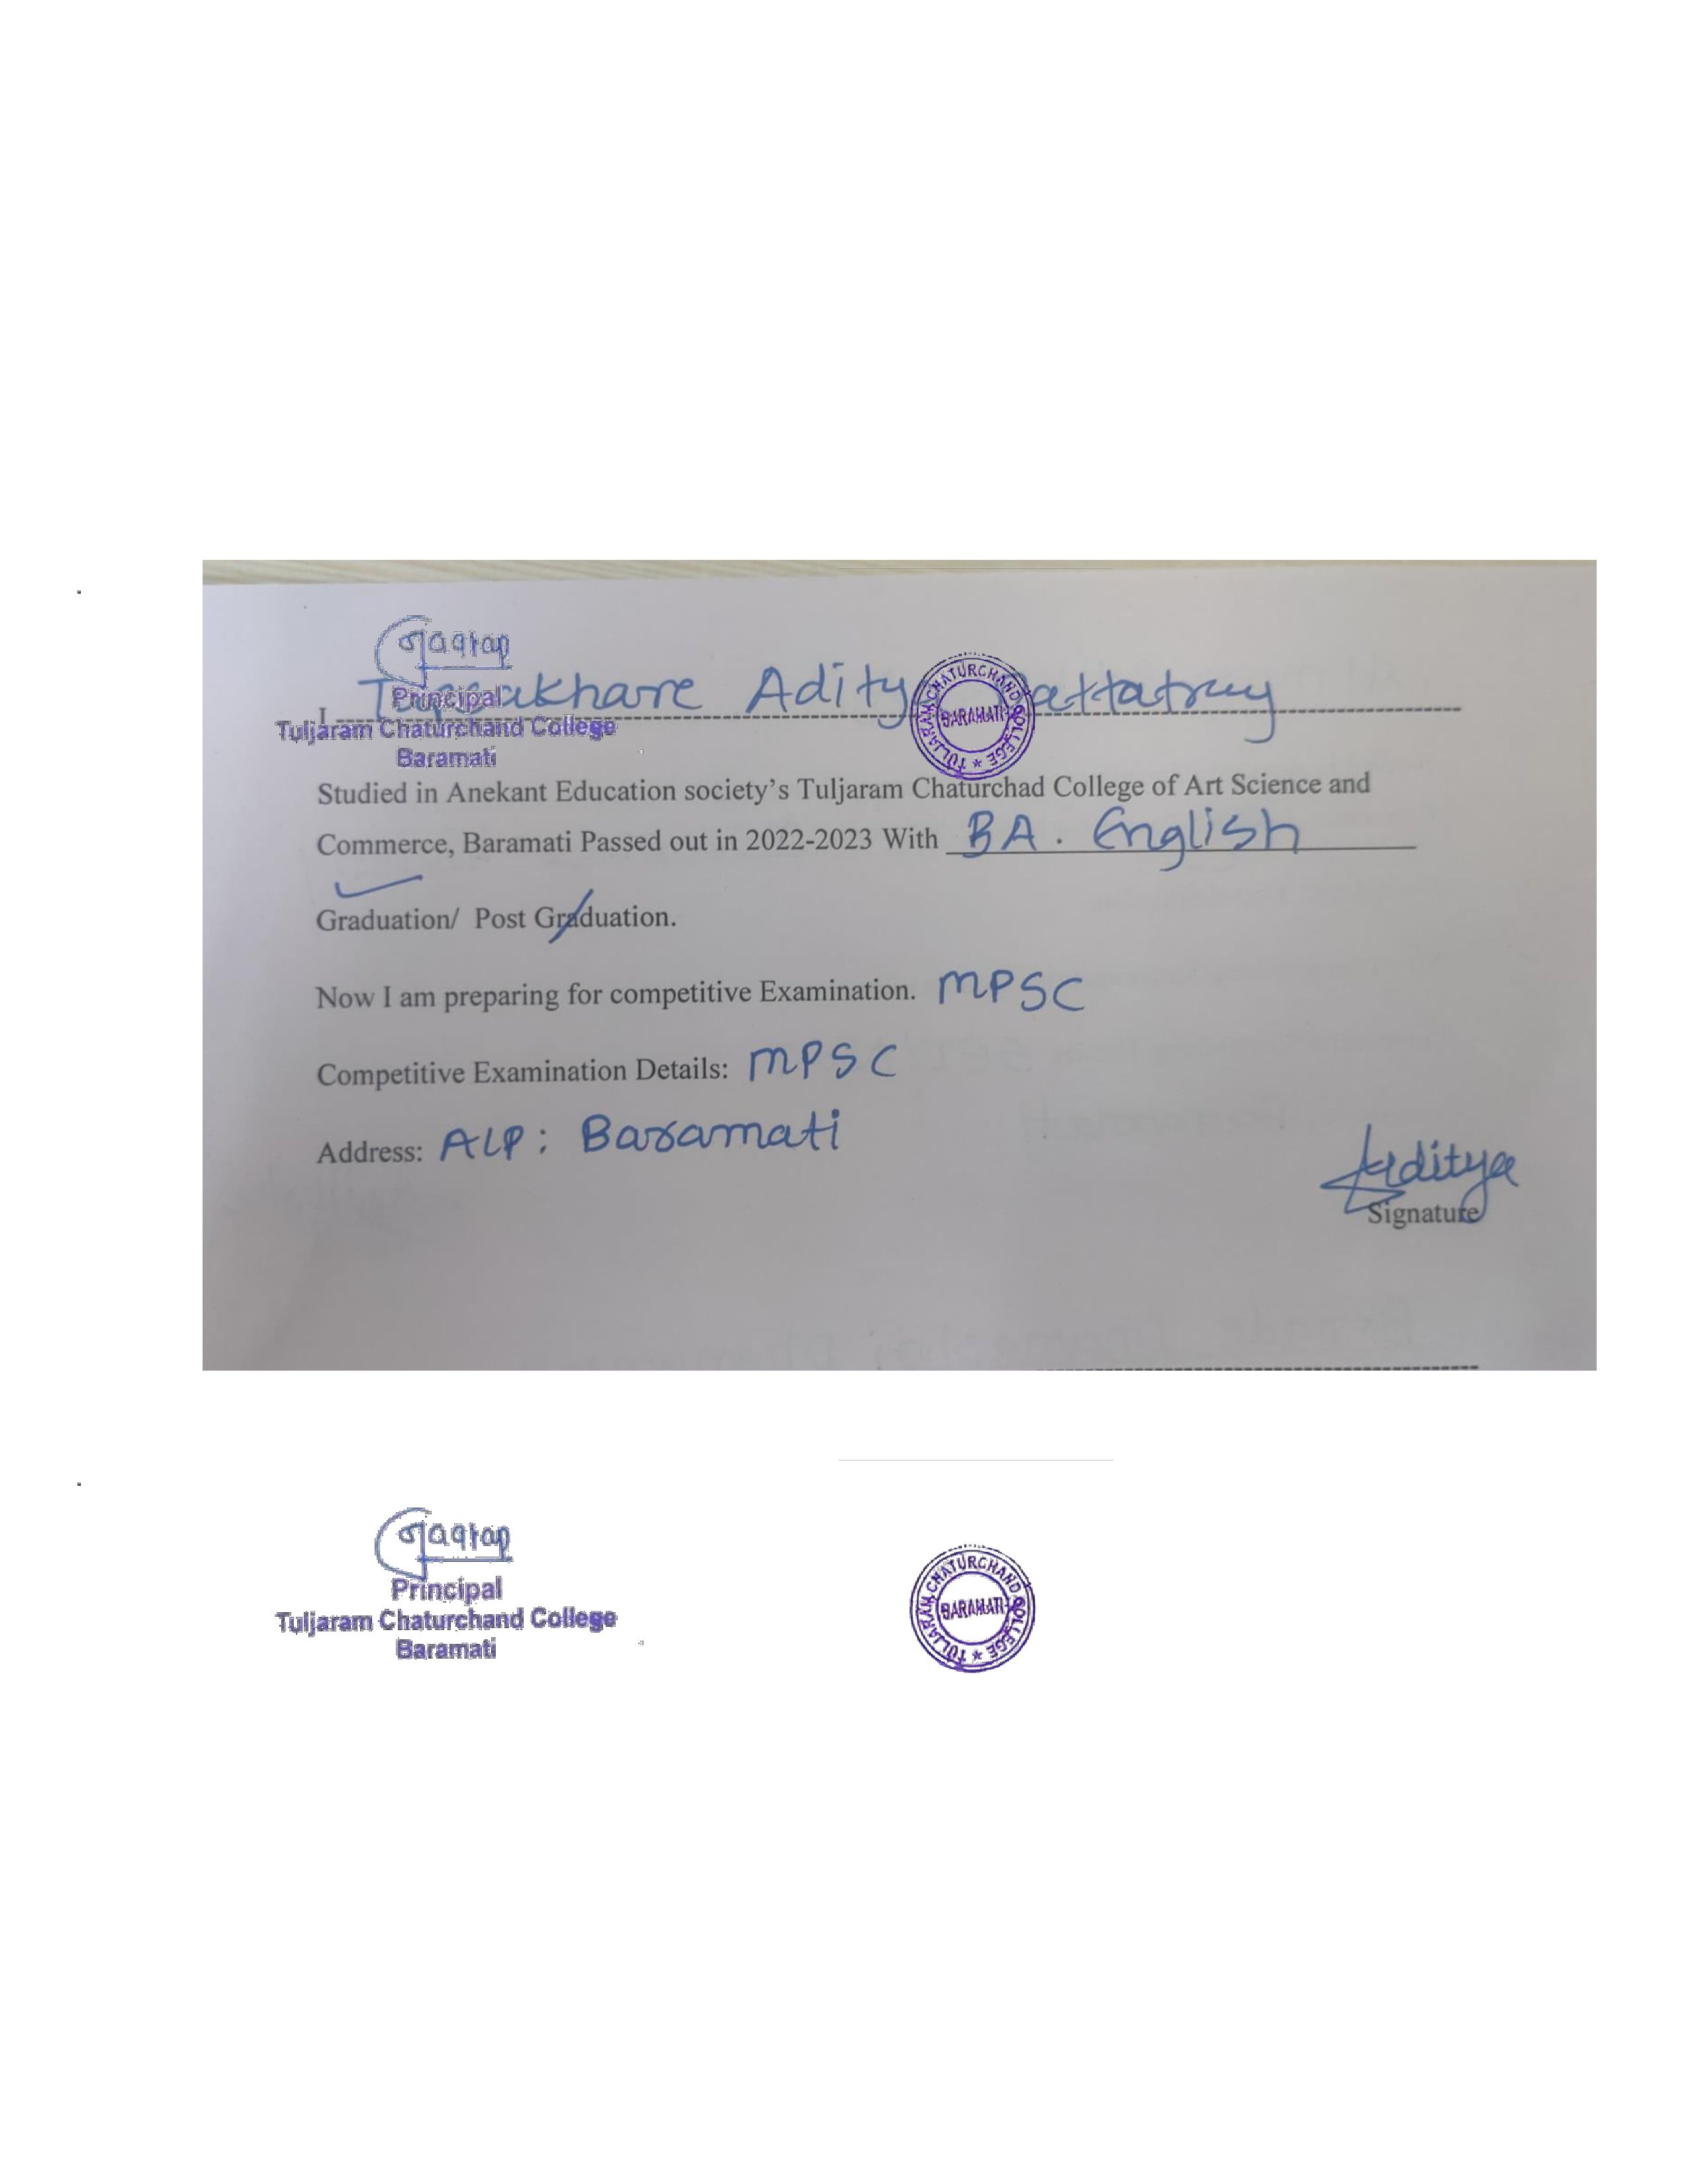 Jagtap
Principal
I Aditya Dattatray
Tuljaram Chaturchand College
Baramati
TULJARAM CHATURCHAND COLLEGE * BARAMATI
Studied in Anekant Education society's Tuljaram Chaturchad College of Art Science and
Commerce, Baramati Passed out in 2022-2023 With BA. English
Graduation/ Post Graduation.
Now I am preparing for competitive Examination. MPSC
Competitive Examination Details: MPSC
Address: A/P: Baramati
Aditya
Signature
Jagtap
Principal
Tuljaram Chaturchand College
Baramati
TULJARAM CHATURCHAND COLLEGE * BARAMATI